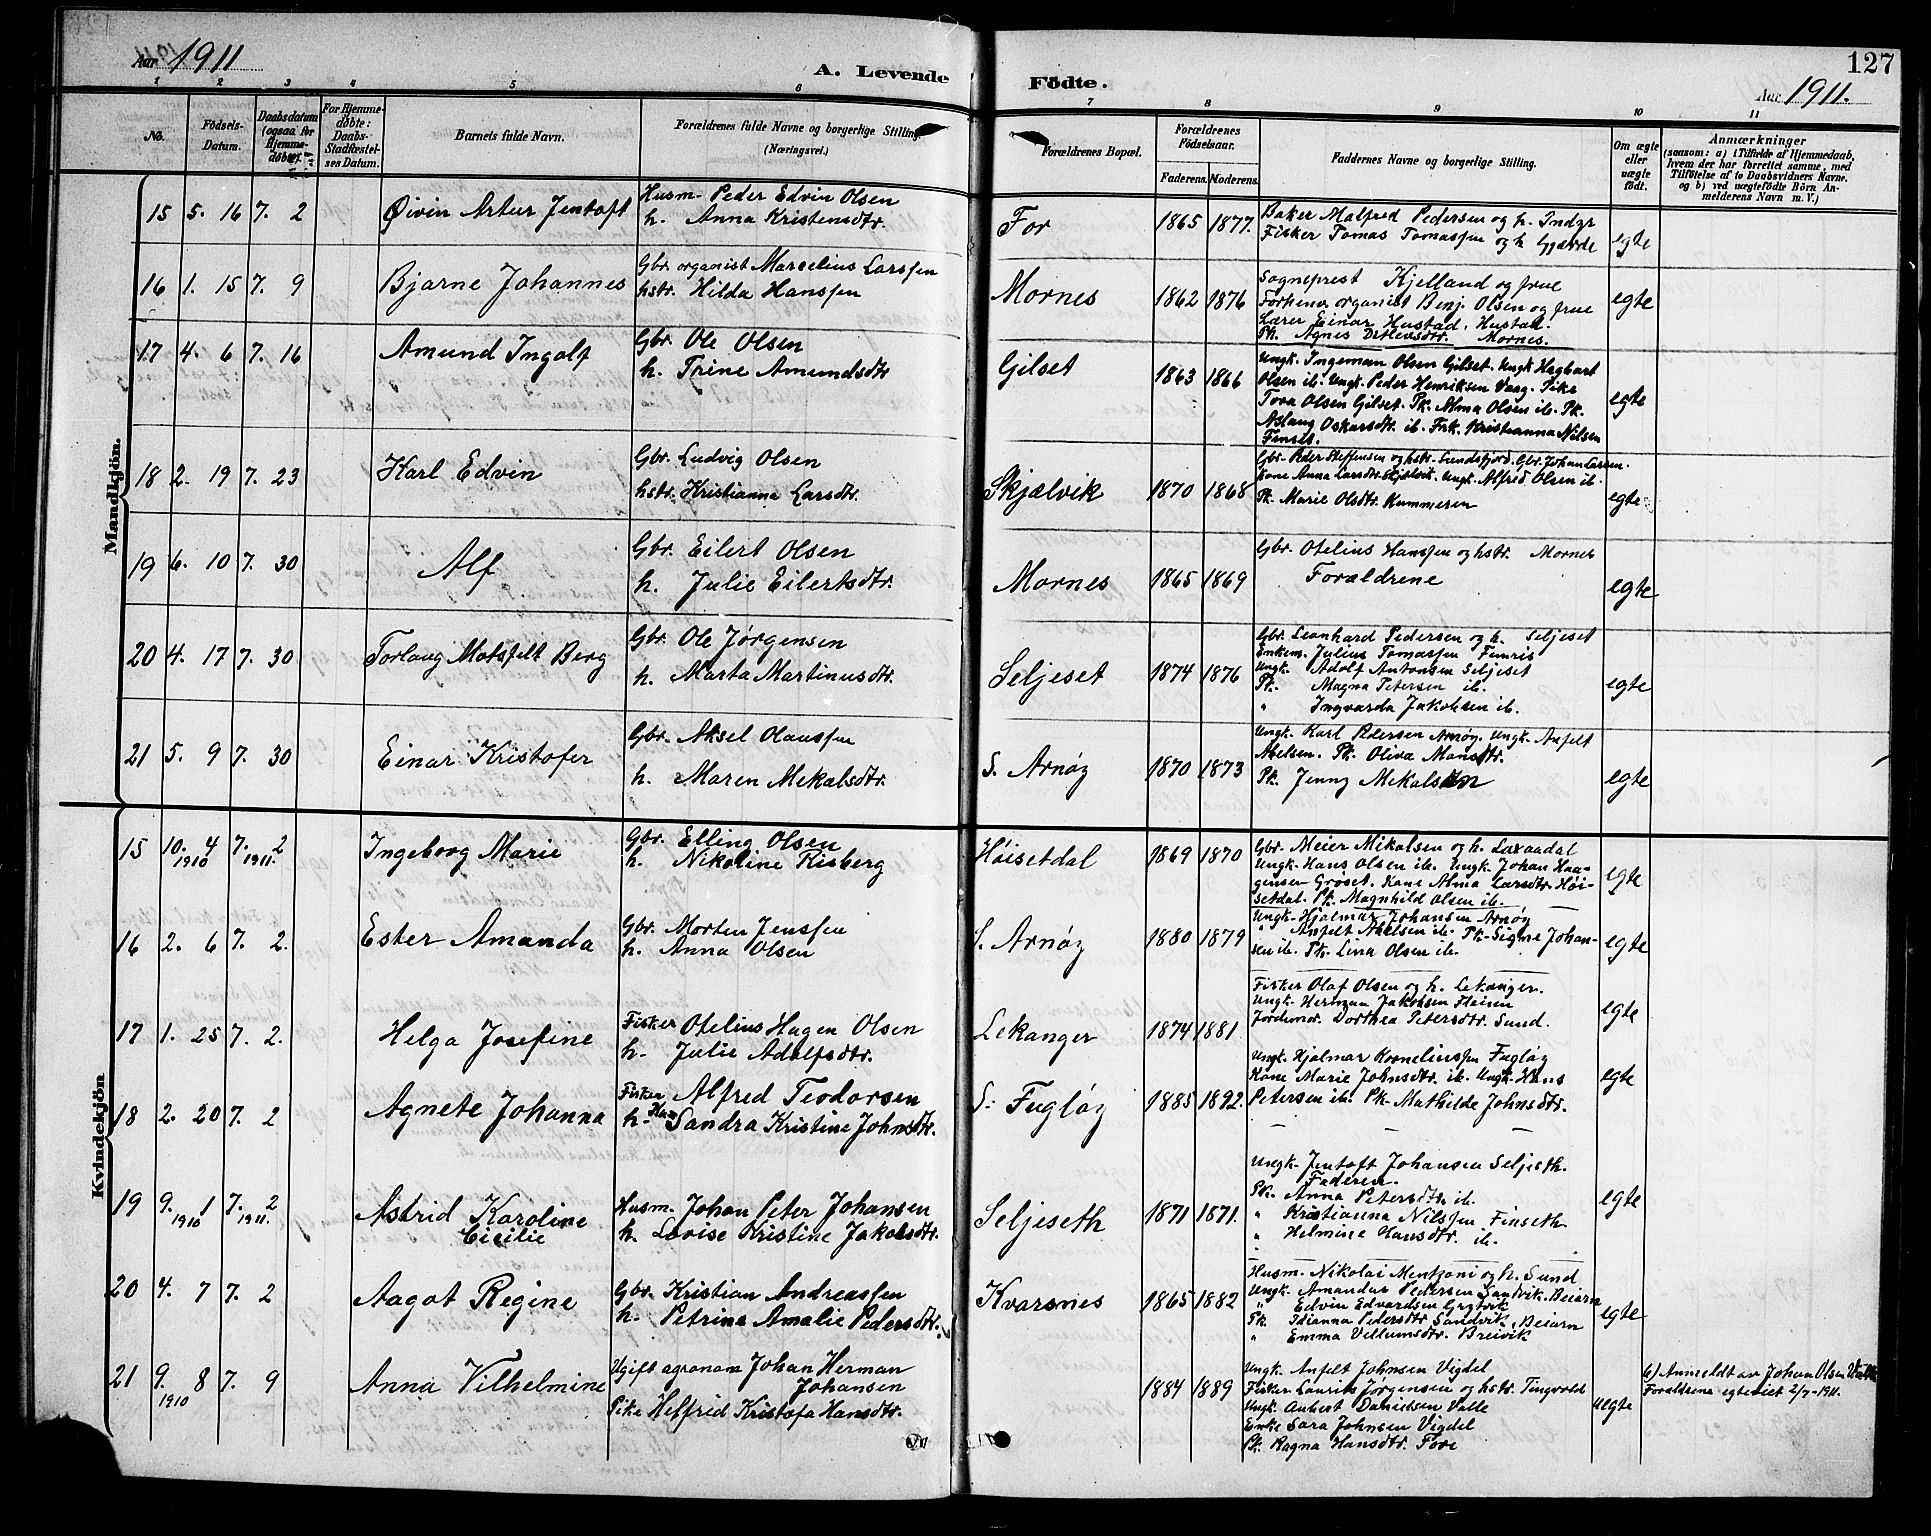 Aar 1911
A. Levende
Födte.
127
Aar 1911.
1 2 3 4 5 6 7 8 9 10 11
No.
Födsels-Datum.
Daabsdatum (ogsaa for Hjemme-døbte).
For Hjemme-døbte: Daabs-Stadfæstelses Datum.
Barnets fulde Navn.
Forældrenes fulde Navne og borgerlige Stilling (Næringsvei.)
Forældrenes Bopæl.
Forældrenes Fødselsaar.
Faderens. Moderens.
Faddernes Navne og borgerlige Stilling.
Om ægte eller uægte født.
Anmærkninger
(saasom: a) i Tilfælde af Hjemmedaab, hvem der har forrettet samme, med Tilføielse af to Daabsvidners Navne. og b) ved uægtefødte Börn Anmelderens Navn m. V.)
Mandkjön.
15 5. 16 7. 2 Øivin Artur Jentoft
Husm. Peder Edvin Olsen
h. Anna Kristensdtr.
For 1865 1877.
Baker Malfred Pedersen og h. Indgr
Fisker Tomas Tomassen og h Gjærde
egte
16 1. 15 7. 9 Bjarne Johannes
Gbr. organist Marselius Larssen
hstr. Hilda Hanssen
Mornes 1862 1876
Sogneprest Kjelland og frue
Forhenv. organist Benj. Olsen og frue
Lærer Einar Hustad, Hustad.
Pk. Agnes Ditlevsdtr. Mornes.
egte
17 4. 6 7. 16 Amund Ingolf
Gbr. Ole Olsen
h. Trine Amundsdtr
Gilset 1863 1866
Ungk. Ingeman Olsen Gilset. Ungk Hagbart
Olsen ib. Ungk. Peder Henriksen Vaag. Pike
Tora Olsen Gilset. Pk. Alma Olsen ib. Pk.
Aslaug Oskarsdtr. ib. Frk. Kristianna Nilsen
Finset.
egte
18 2. 19 7. 23 Karl Edvin
Gbr. Ludvig Olsen
hstr. Kristianna Larsdtr.
Skjælvik 1870 1868
Gbr. Peder Steffensen og hstr. Sundsfjord. Gbr. Johan Larsen.
Kone Anna Larsdtr. Skjelvik. Ungk. Alfred Olsen ib.
Pk. Marie Olsdtr. Kummeren
egte
19 6. 10 7. 30 Alf
Gbr. Eilert Olsen
h. Julie Eilertsdtr.
Mornes 1865 1869
Gbr. Otelius Hanssen og hstr. Mornes
Forældrene
egte
20 4. 17 7. 30 Torlaug Motsfelt Berg
Gbr. Ole Jørgensen
h. Marta Martinusdtr.
Seljeset 1874 1876
Gbr. Leonhard Pedersen og h. Seljeset
Enkem. Julius Tomassen Finris
Ungk. Adolf Antonsen Seljeset
Pk. Magna Petersen ib.
" Ingvarda Jakobsen ib.
egte
21 5. 9 7. 30 Einar Kristofer
Gbr. Aksel Olaussen
h. Maren Mekalsdtr.
S. Arnøy 1870 1873
Ungk. Karl Pedersen Arnøy. Ungk. Anfelt
Abelsen. Pk. Oliva Monsdtr.
Pk. Jenny Mekalsen
egte
Kvindekjön
15 10. 4 1910 7. 2 1911. Ingeborg Marie
Gbr. Elling Olsen
h. Nikoline Risberg
Høisetdal 1869 1870
Gbr. Meier Mikalsen og h. Laxaadal
Ungk. Hans Olsen ib. Ungk. Johan Haa-
gensen Grøset. Kone Alma Larsdtr. Høi-
setdal. Pk. Magnhild Olsen ib.
egte
16 2. 6 7. 2. Ester Amanda
Gbr. Morten Jenssen
h. Anna Olsen
S. Arnøy 1880 1879
Ungk. Hjalmar Johansen Arnøy
" Anfelt Abelsen ib. Pk. Signe Johan-
sen ib. Pk. Lina Olsen ib.
egte
17 1. 25 7. 2. Helga Josefine
Fisker Otelius Hagen Olsen
h. Julie Adolfsdtr.
Lekanger 1874 1881.
Fisker Olaf Olsen og h. Lekanger.
Ungk. Herman Jakobsen Fleina
Jordmor. Dorthea Petersdtr. Sund.
egte
18 2. 20 7. 2 Agnete Johanna
Fisker Alfred Teodorsen
h. Sandra Kristine Johnsdtr.
S. Fugløy 1885 1892.
Ungk. Hjalmar Korneliussen Fugløy
Kone Marie Johnsdtr. ib. Ungk. Hans
Petersen ib. Pk. Mathilde Johnsdtr.
egte
19 9. 1 1910 7. 2 1911. Astrid Karoline
Cicilie
Husm. Johan Peter Johansen
h. Lovise Kristine Jakobsdtr.
Seljeseth 1871 1871.
Ungk. Jentoft Johansen Seljeseth.
Faderen.
Pk. Anna Petersdtr. ib.
" Kristianna Nilssen Finseth.
" Helmine Hansdtr. ib.
egte
20 4. 7 7. 2 Aagot Regine
Gbr. Kristian Andreassen
h. Petrina Amalie Pedersdtr.
Kvarsnes 1865 1882
Husm. Nikolai Mentzoni og h. Sund
Ungk. Amandus Pedersen Sandvik, Beiarn
" Edvin Edvardsen
Pk. Idianna Pedersdtr Sandvik, Beiarn
" Emma Villumsdtr. Breivik
egte
21 9. 8 1910 7. 9 Anna Vilhelmine
Ugift agronom Johan Herman
Johansen
Pike Helfrid Kristofa Hansdtr.
1884 1889
Ungk. Anfelt Johnsen Vigdel
Fisker Laurits Jørgensen og hstr. Tingvold
Ungk. Anbert Danielsen Valle
Enke Sara Johnsen Vigdel
Pk. Ragna Hansdtr. Fore
uegte
b) Anmeldt av Johan Olsen
Forældrene egteviet 2/7-1911.